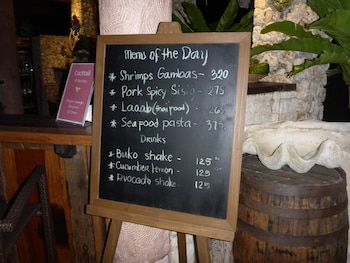 Cocktail
Menu of the Day
* Shrimps Gambas - 320
* Pork Spicy Sisig - 275
* Laaab (thai food) -
* Seafood pasta - 375
Drinks
* Buko shake - 125
* Cucumber lemon - 125
* Avocado shake - 125